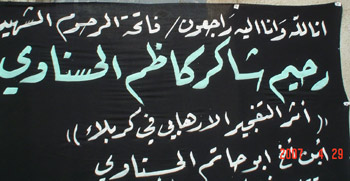 انا لله وانا اليه راجعون / فاتحة المرحوم الشهيد
رحيم شاكر كاظم الحسناوي
(( أثر التفجير الارهابي في كربلاء ))
ابن أخ ابو حاتم الحسناوي
2007 4 29